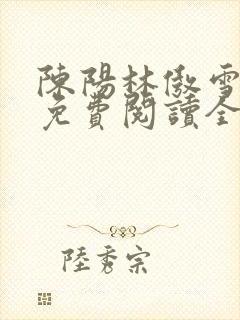 陳陽林傲雪
免費閱讀全
陸秀宗